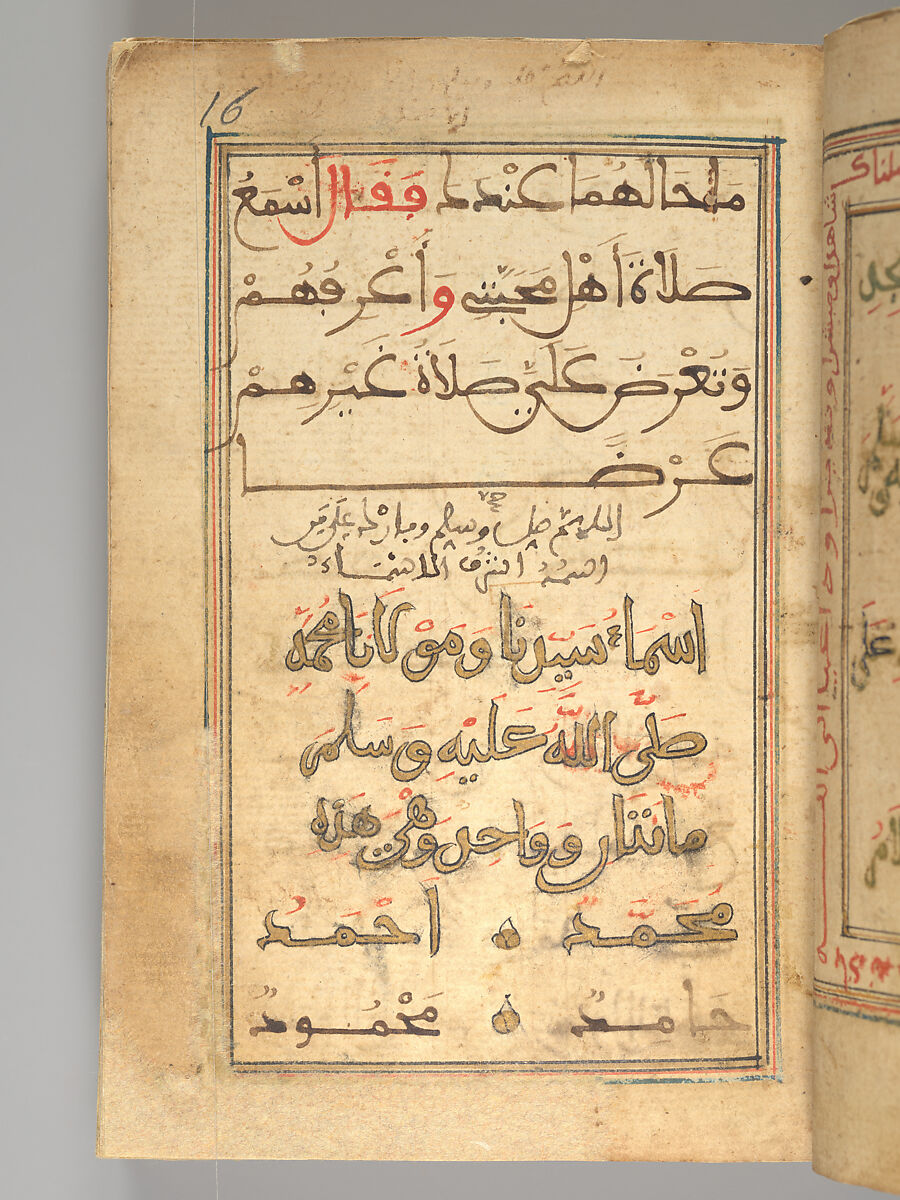 16
مَا حَالُهُمَا عِنْدَكَ فَقَالَ أَسْمَعُ
صَلَاةَ أَهْلِ مَحَبَّتِي وَأَعْرِفُهُمْ
وَتُعْرَضُ عَلَيَّ صَلَاةُ غَيْرِهِمْ
عَرْضًا
اللهم صل وسلم وبارك على من
اسمه اشرف الاسماء
اَسْمَاءُ سَيِّدِنَا وَمَوْلَانَا مُحَمَّدٍ
صَلَّى اللَّهُ عَلَيْهِ وَسَلَّمَ
مائتان وَوَاحِدٌ وَهْيَ هَذِه
مُحَمَّدٌ اَحْمَدُ
حَامِدٌ مَحْمُودٌ